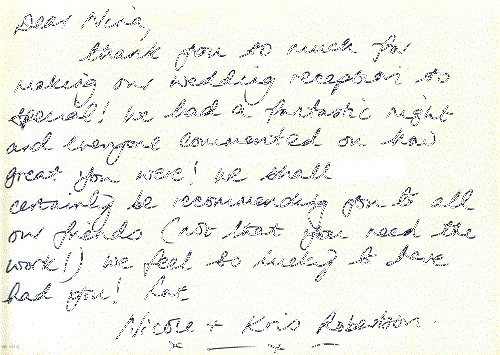 Dear Nina,
thank you so much for
making our wedding reception so
special! We had a fantastic night
and everyone commented on how
great you were! We shall
certainly be recommending you to all
our friends (not that you need the
work!) We feel so lucky to have
had you! Love
Nicole + Kris Robertson
x x